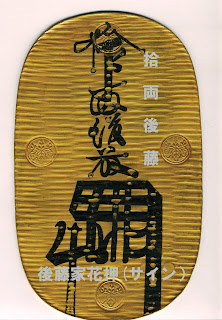 拾両後藤
拾両後藤
後藤家花押(サイン)